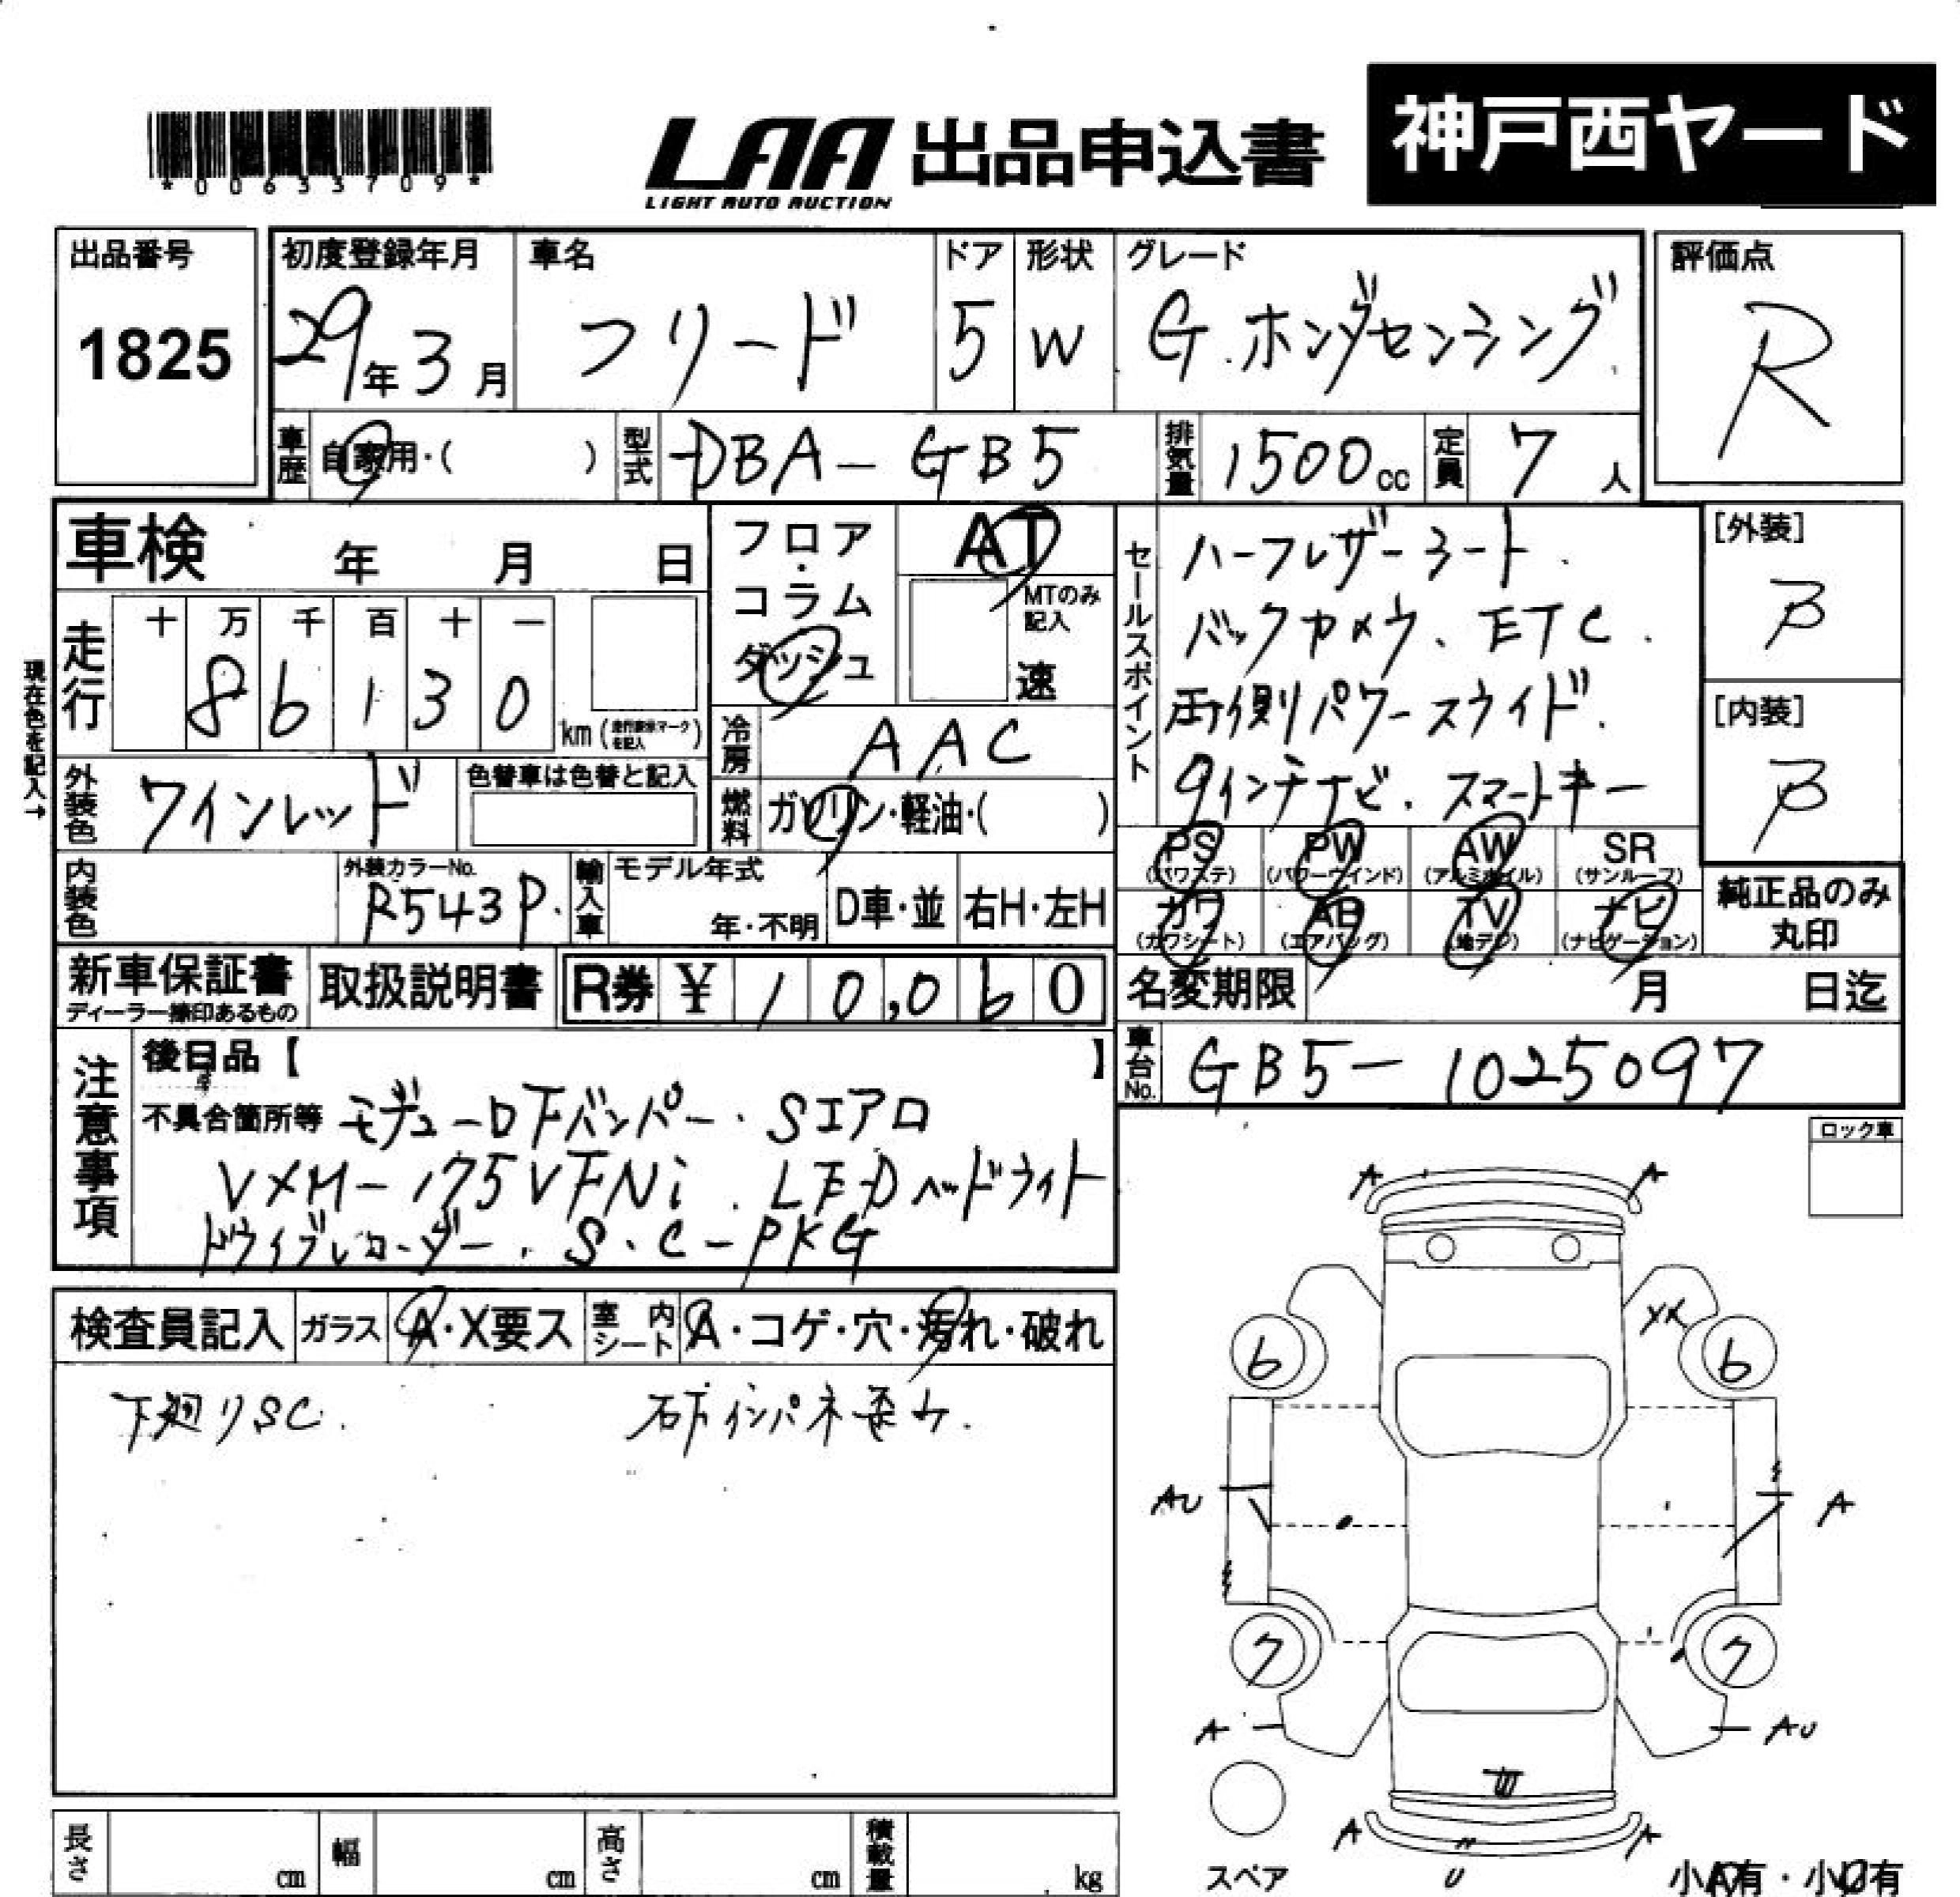 *00633709*
LAA 出品申込書
LIGHT AUTO AUCTION
神戸西ヤード
出品番号
1825
初度登録年月
29年3月
車名
フリード
ドア
5
形状
W
グレード
G.ホンダセンシング
評価点
R
車歴 自家用・( )
型式 DBA-GB5
排気量 1500cc
定員 7人
車検 年 月 日
フロア・コラム
ダッシュ
AT
MTのみ記入
速
セールスポイント
ハーフレザーシート.
バックカメラ、ETC.
両側パワースライド.
9インチナビ.スマートキー
[外装]
B
[内装]
B
現在色を記入→
走行
十 万 千 百 十 一
8 6 1 3 0
km(走行距離マークを記入)
冷房 AAC
外装色 ワインレッド
色替車は色替と記入
燃料 ガソリン・軽油・( )
PS(パワステ) PW(パワーウインド) AW(アルミホイル) SR(サンルーフ)
カワ(カワシート) AB(エアバッグ) TV(地デジ) ナビ(ナビゲーション)
純正品のみ丸印
内装色
外装カラーNo.
R543P.
輸入車
モデル年式
年・不明
D車・並
右H・左H
新車保証書
ディーラー捺印あるもの
取扱説明書
R券 ¥ 10,060
名変期限 月 日迄
車台No. GB5-1025097
注意事項
後日品【 】
不具合箇所等 モデューロ下バンパー.Sエアロ
VXM-175VFNi.LEDヘッドライト
ドライブレコーダー.S.C-PKG
ロック車
検査員記入 ガラス A・X要ス 室内シート A・コゲ・穴・汚れ・破れ
下廻りSC.
右下インパネ歪ナ.
A A
XX
6 6
AU A
7 7
A AU
A A
U
スペア
小A有・小U有
長さ cm
幅 cm
高さ cm
積載量 kg